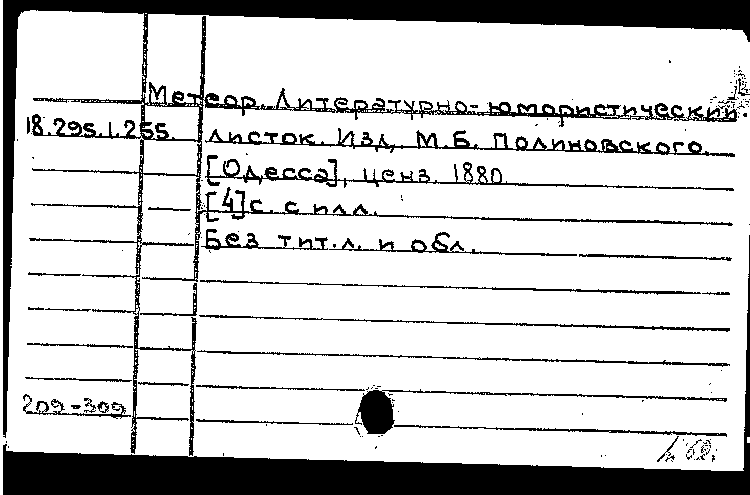 Метеор. Литературно-юмористический
18.295.1.255. листок. Изд, М.Б. Полиновского.
[Одесса], ценз. 1880
[4]с. с илл.
Без тит.л. и обл.
209-309